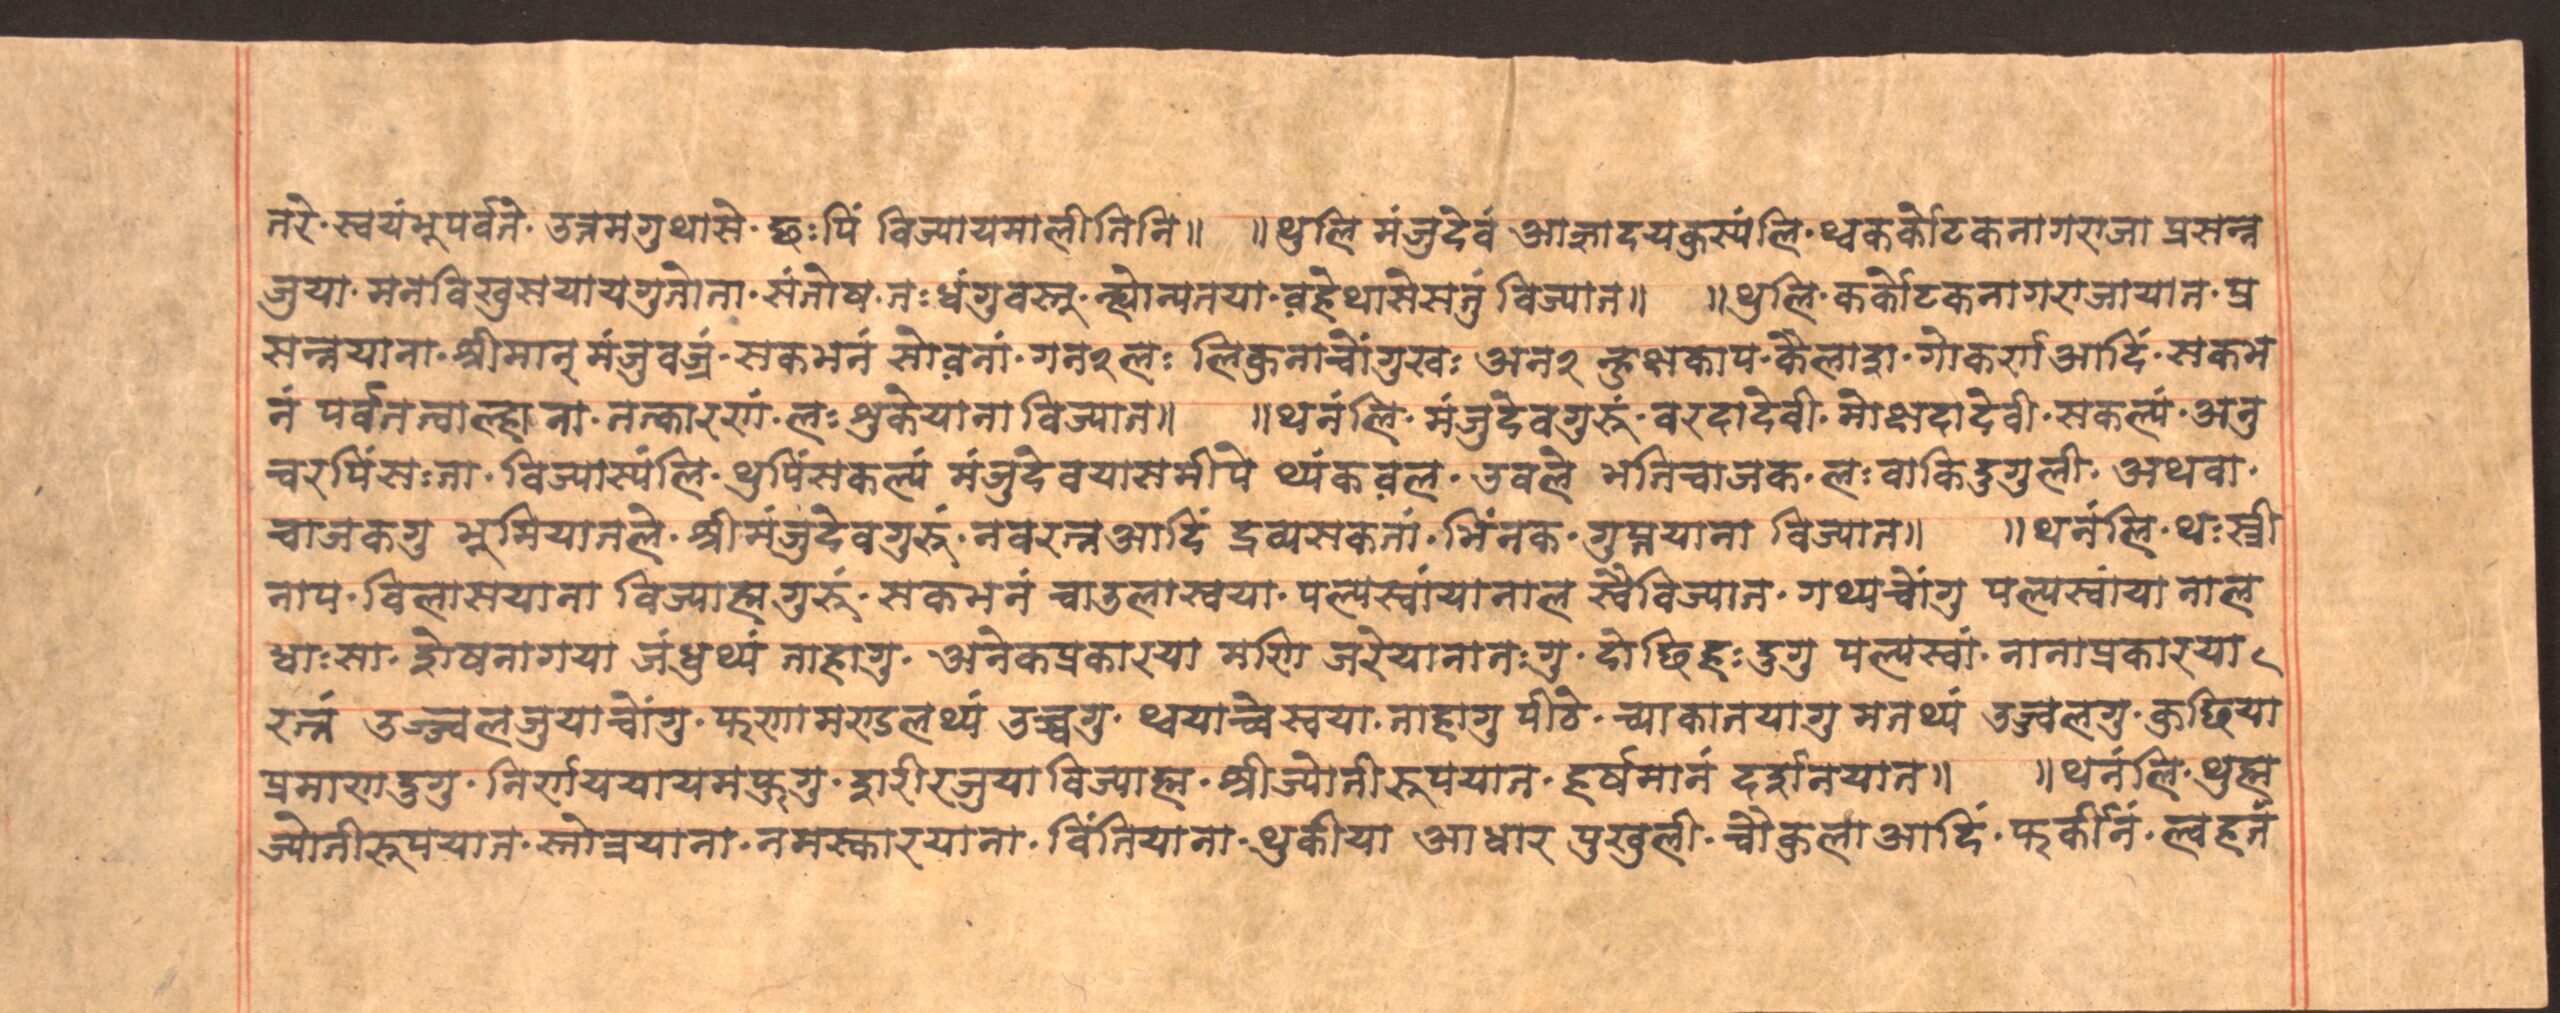 तरे · स्वयंभुपर्वते · उत्तमगुथासे · छःपिं विज्यायमालीतिनि॥ ॥थुलि मंजुदेवं आज्ञादयकुस्यंलि · थ्वकर्कोटकनागराजा प्रसन्न
जुया · मनेविखुसयायगुतोता · संतोष · तःधंगुवस्तु · न्ह्योन्यतया · व़हेथासेसतुं विज्यात॥ ॥थुलि · कर्कोटकनागराजायात · प्र
सन्नयाना · श्रीमान् मंजुवज्रं · सकभनं सोव़नां · गन२लः लिकुनाचोंगुखः अन२ न्हुक्षकाप · कैलाश · गोकर्ण आदिं · सकभ
नं पर्वतत्वाल्हाना · तत्कारणं · लः थुकेयाना विज्यात॥ ॥थनंलि · मंजुदेवगुरूं · वरदादेवी · मोक्षदादेवी · सकल्यं · अनु
चरपिंसःता · विज्यास्यंलि · थुपिंसकल्यं मंजुदेवयासमीपे थ्यंकव़ल · उवले भतिचाजक · लःवाकिदुगुली · अथवा ·
चाजकगु भुमियातले · श्रीमंजुदेवगुरूं · नवरत्नआदिं द्रव्यसकतां · भिंनक · गुप्तयाना विज्यात॥ ॥थनंलि · थःस्त्री
नाप · विलासयाना विज्याह्मगुरूं · सकभनं चाउलास्वया · पल्यस्वांयानाल स्वैविज्यात · गथ्यचोंगु पल्यस्वांया नाल
धाःसा · शेषनागया जंधुथ्यं ताहागु · अनेकप्रकारया मणि जरेयानातःगु · दोछिहःदुगु पल्यस्वां · नानाप्रकारया
रत्नं उज्ज्वलजुयाचोंगु · फणामण्डलथ्यं उच्चगु · थ्वयाच्वेस्वया · ताहागु पीठे · च्याकातयागु मतथ्यं उज्वलगु · कुछिया
प्रमाणदुगु · निर्णययायमफुगु · शरीरजुया विज्याह्म · श्रीज्योतीरूपयात · हर्षमानं दर्शनयात॥ ॥थनंलि · थुह्म
ज्योतीरूपयात · स्तोत्रयाना · नमस्कारयाना · विंतियाना · थुकीया आधार पुखुली · चौकुला आदिं · फुकींनं · ल्वहनं